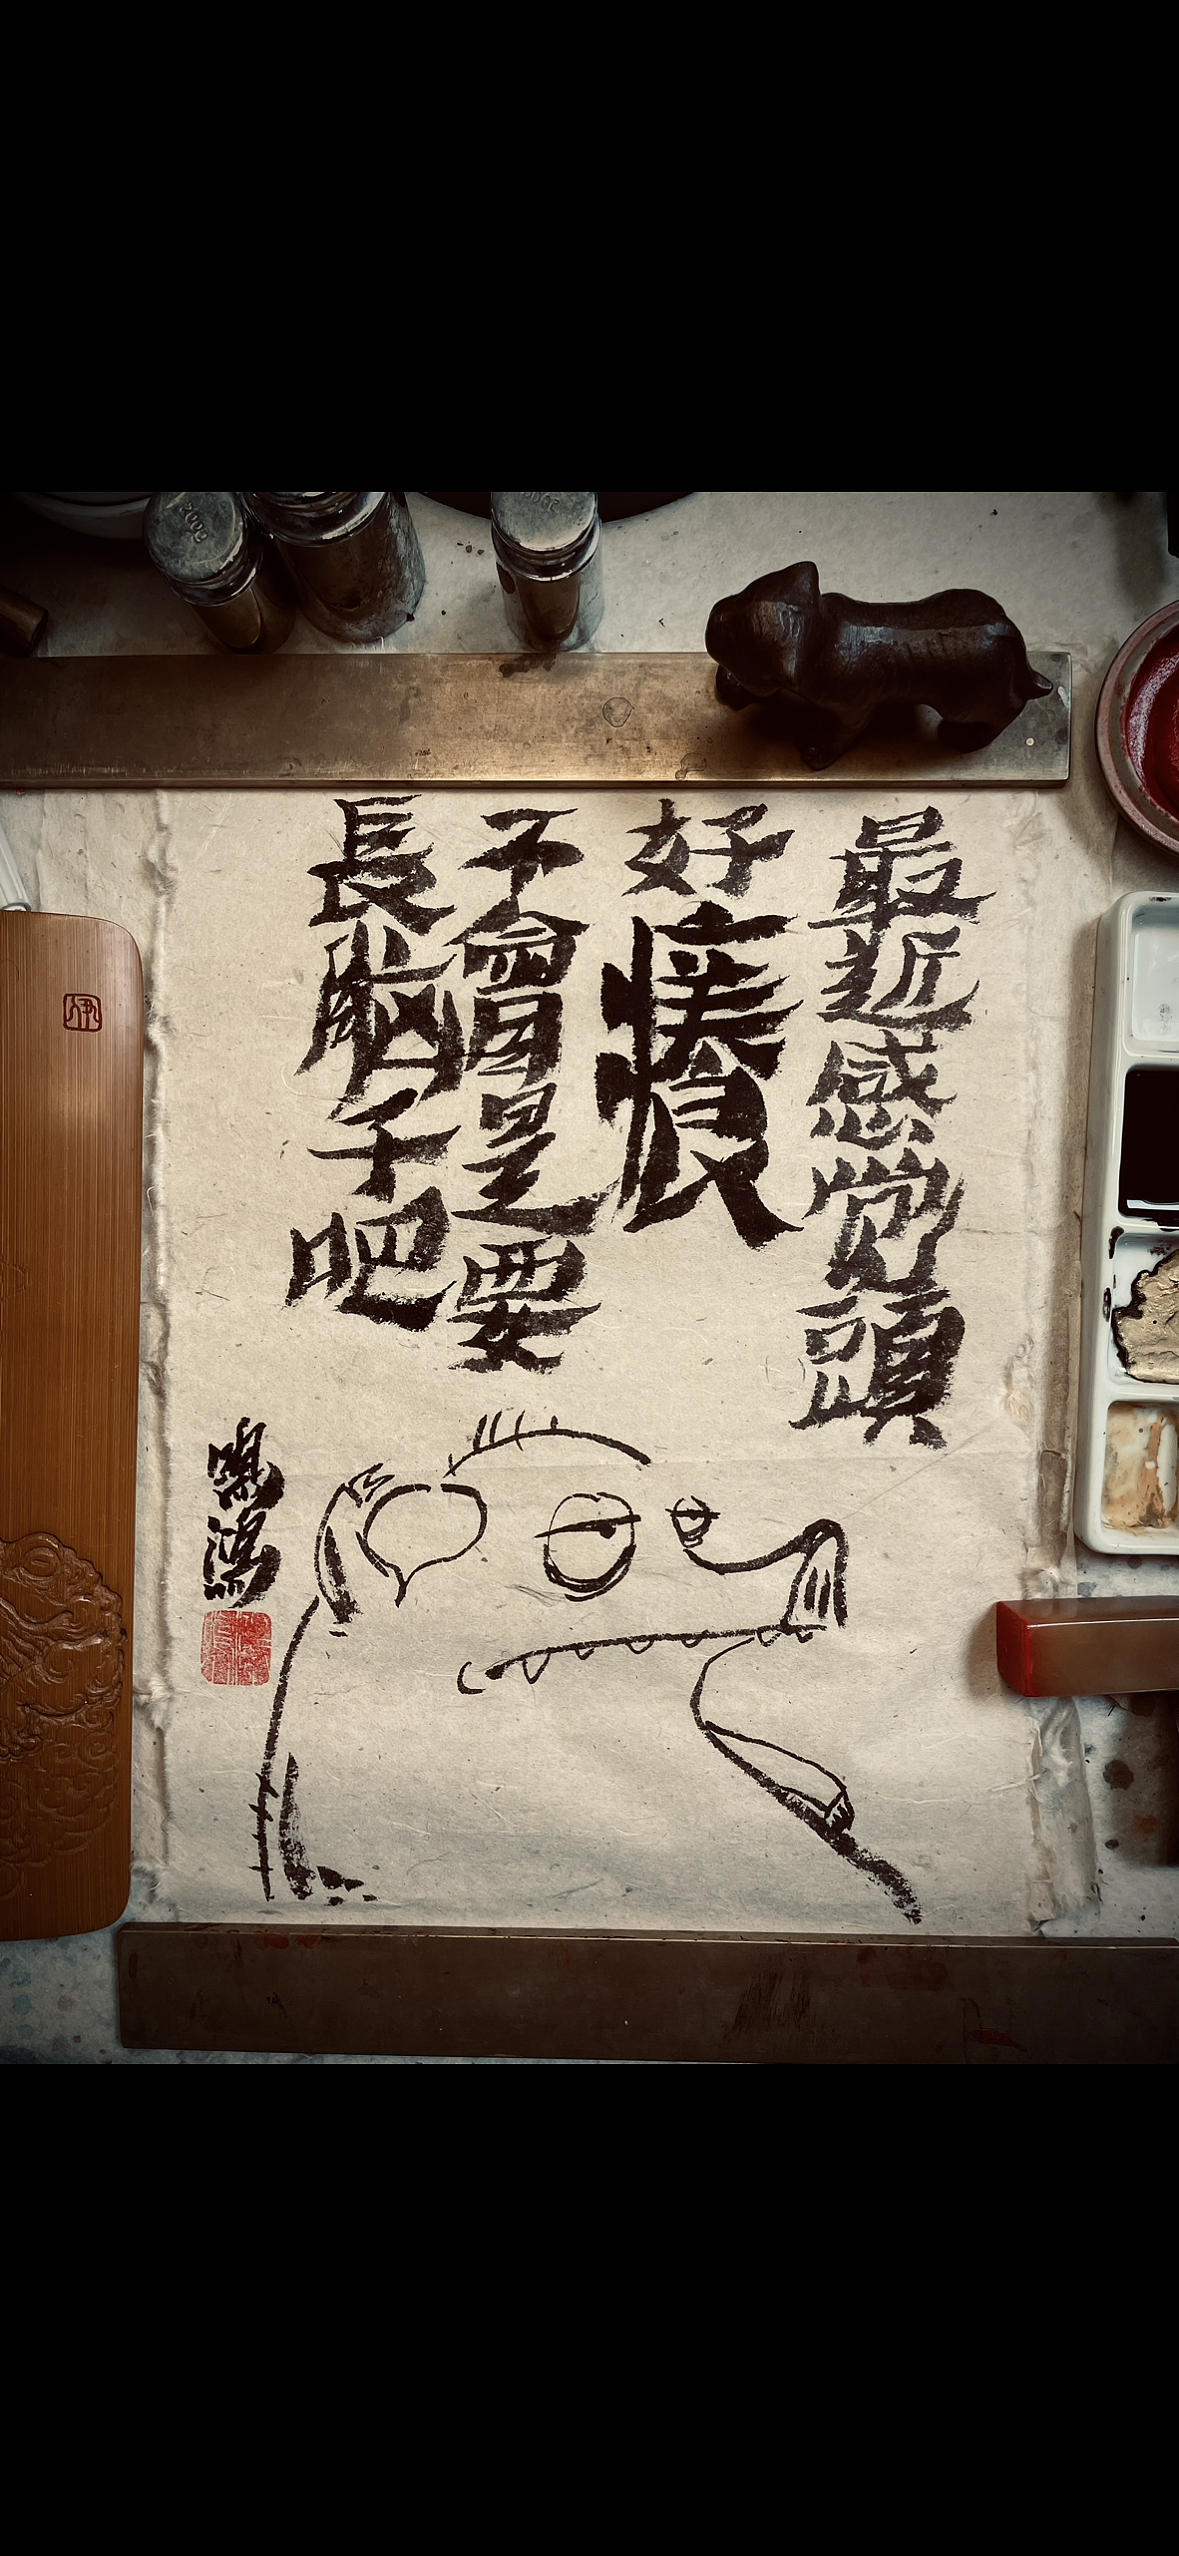 最近感觉頭
好癢
不會是要
長腦子吧
鳴鴻
200g